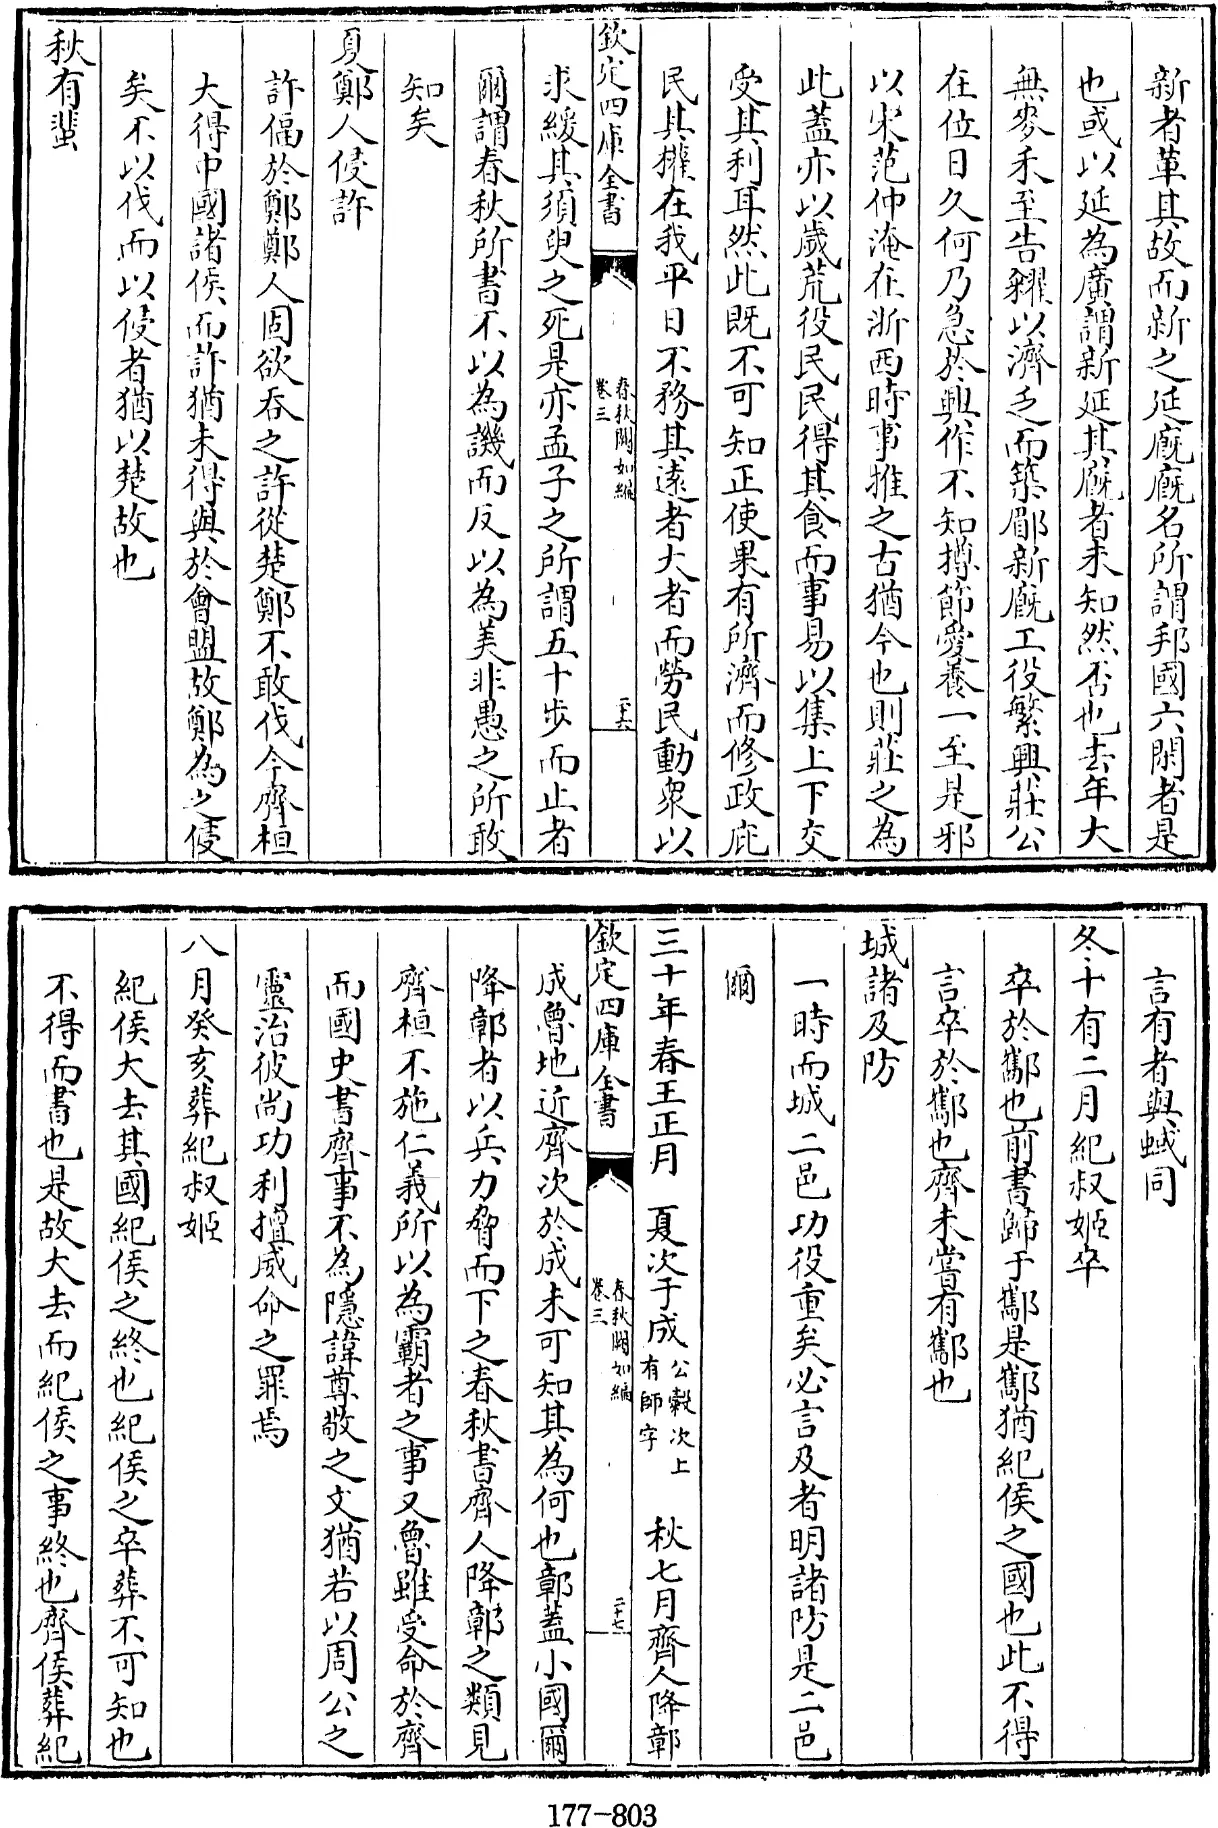 新者革其故而新之延廐廐名所謂邦國六閑者是
也或以延為廣謂新延其廐者未知然否也去年大
無麥禾至告糴以濟乏而築郿新廐工役繁興莊公
在位日久何乃急於興作不知撙節愛養一至是邪
以宋范仲淹在浙西時事推之古猶今也則莊之為
此蓋亦以歲荒役民民得其食而事易以集上下交
受其利耳然此既不可知正使果有所濟而修政庇
民其權在我平日不務其遠者大者而勞民動衆以
欽定四庫全書
春秋闕如編
卷三
二十六
求緩其須臾之死是亦孟子之所謂五十步而止者
爾謂春秋所書不以為譏而反以為美非愚之所敢
知矣
夏鄭人侵許
許偪於鄭鄭人固欲吞之許從楚鄭不敢伐今齊桓
大得中國諸侯而許猶未得與於會盟故鄭為之侵
矣不以伐而以侵者猶以楚故也
秋有蜚
言有者與蜮同
冬十有二月紀叔姬卒
卒於酅也前書歸于酅是酅猶紀侯之國也此不得
言卒於酅也齊未嘗有酅也
城諸及防
一時而城二邑功役重矣必言及者明諸防是二邑
爾
三十年春王正月 夏次于成公穀次上有師字 秋七月齊人降鄣
欽定四庫全書
春秋闕如編
卷三
二十七
成魯地近齊次於成未可知其為何也鄣蓋小國爾
降鄣者以兵力脅而下之春秋書齊人降鄣之類見
齊桓不施仁義所以為霸者之事又魯雖受命於齊
而國史書齊事不為隱諱尊敬之文猶若以周公之
靈治彼尚功利擅威命之罪焉
八月癸亥葬紀叔姬
紀侯大去其國紀侯之終也紀侯之卒葬不可知也
不得而書也是故大去而紀侯之事終也齊侯葬紀
177-803